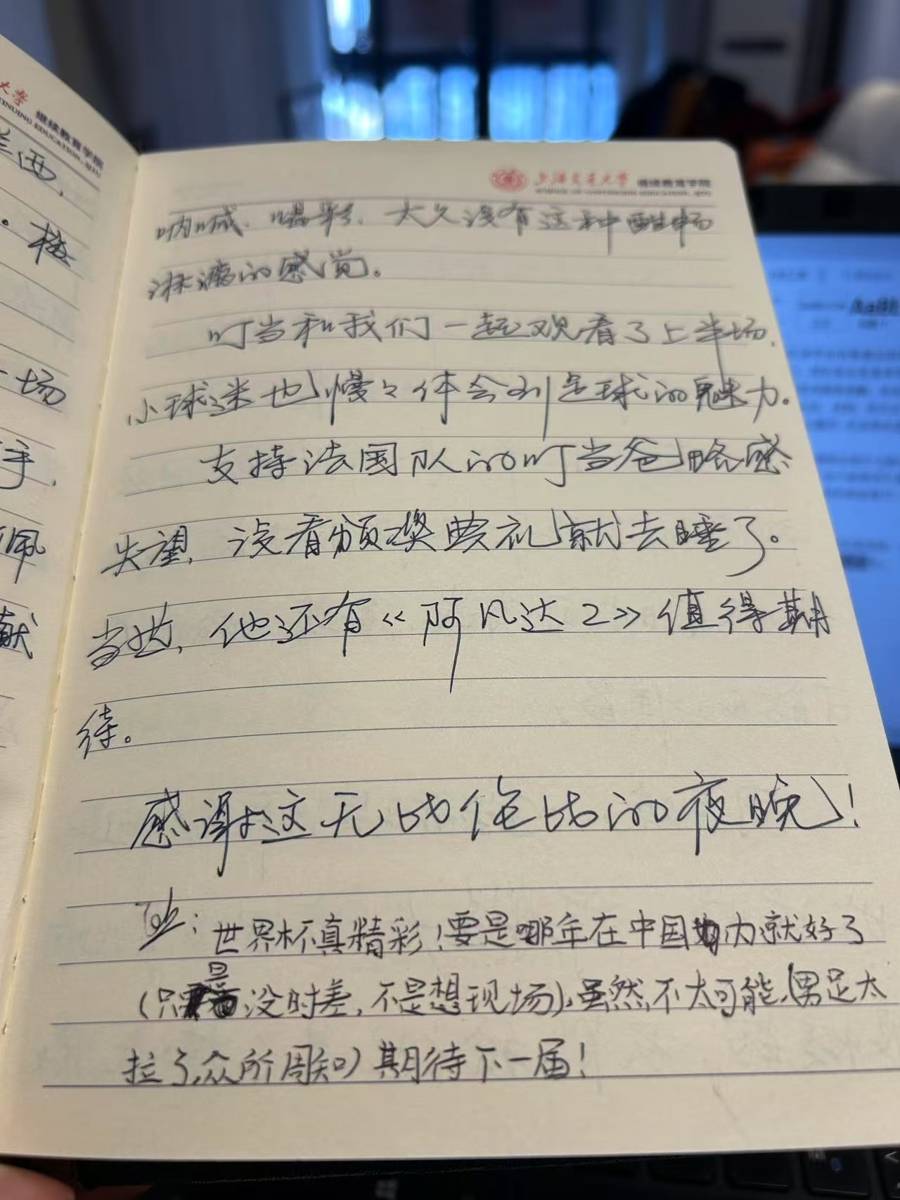 大学 继续教育学院
TINUING EDUCATION, SJTU
兰西,
。格
一场
手,
佩
献
上海交通大学 继续教育学院
SCHOOL OF CONTINUING EDUCATION, SJTU
呐喊、喝彩、大久没有这种酣畅
淋漓的感觉。
叮当和我们一起观看了上半场,
小球迷也慢々体会到足球的魅力。
支持法国队的叮当爸略感
失望,没看颁奖典礼就去睡了。
当然,他还有《阿凡达2》值得期
待。
感谢这无与伦比的夜晚!
世界杯真精彩!要是哪年在中国内就好了
(只是没时差,不是想现场),虽然不太可能,(男足太
拉了,众所周知)期待下一届!
AaBl